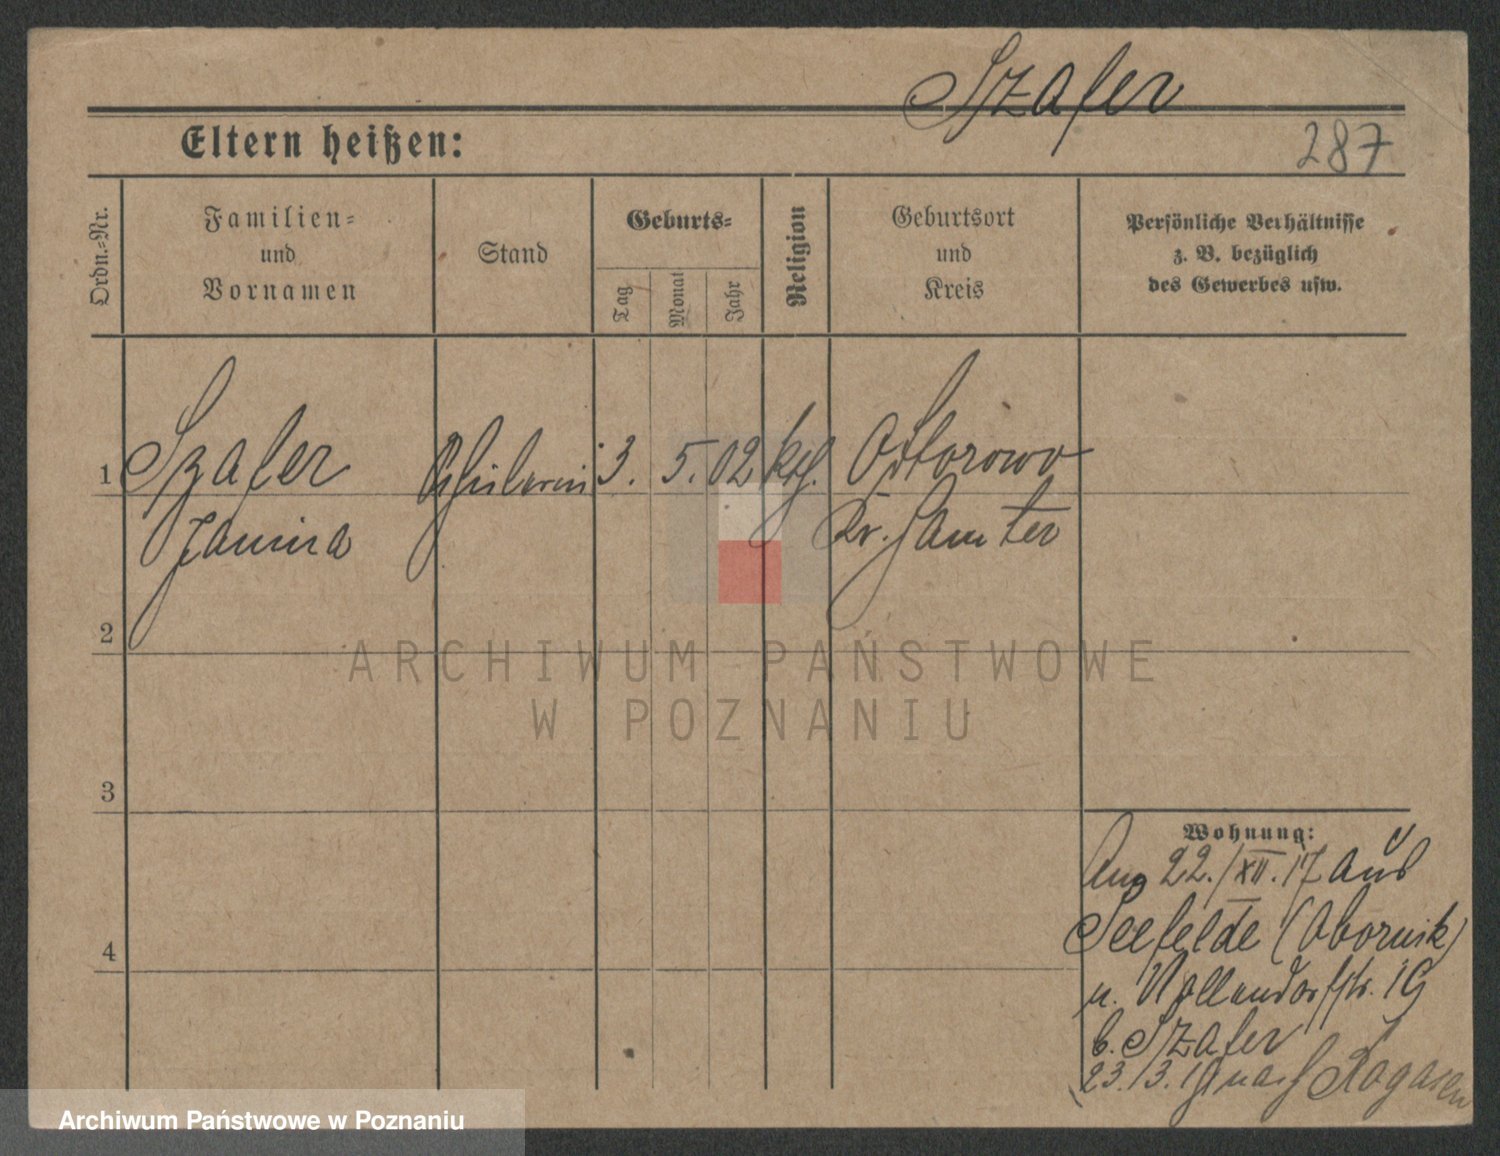 Szafer
Eltern heißen:
287
Ordn.-Nr.
Familien-
und
Vornamen
Stand
Geburts-
Tag
Monat
Jahr
Religion
Geburtsort
und
Kreis
Persönliche Verhältnisse
z. B. bezüglich
des Gewerbes usw.
1 Szafer Schülerin 3. 5. 02 kth. Ostorowo
Janina Kr. Samter
2
3
4
ARCHIWUM PAŃSTWOWE
W POZNANIU
Wohnung:
Ang 22./XII.17 aus
Seefelde (Obornik)
n. Nollendorfstr. 19
b. Szafer
23./3.19 nach Rogasen
Archiwum Państwowe w Poznaniu